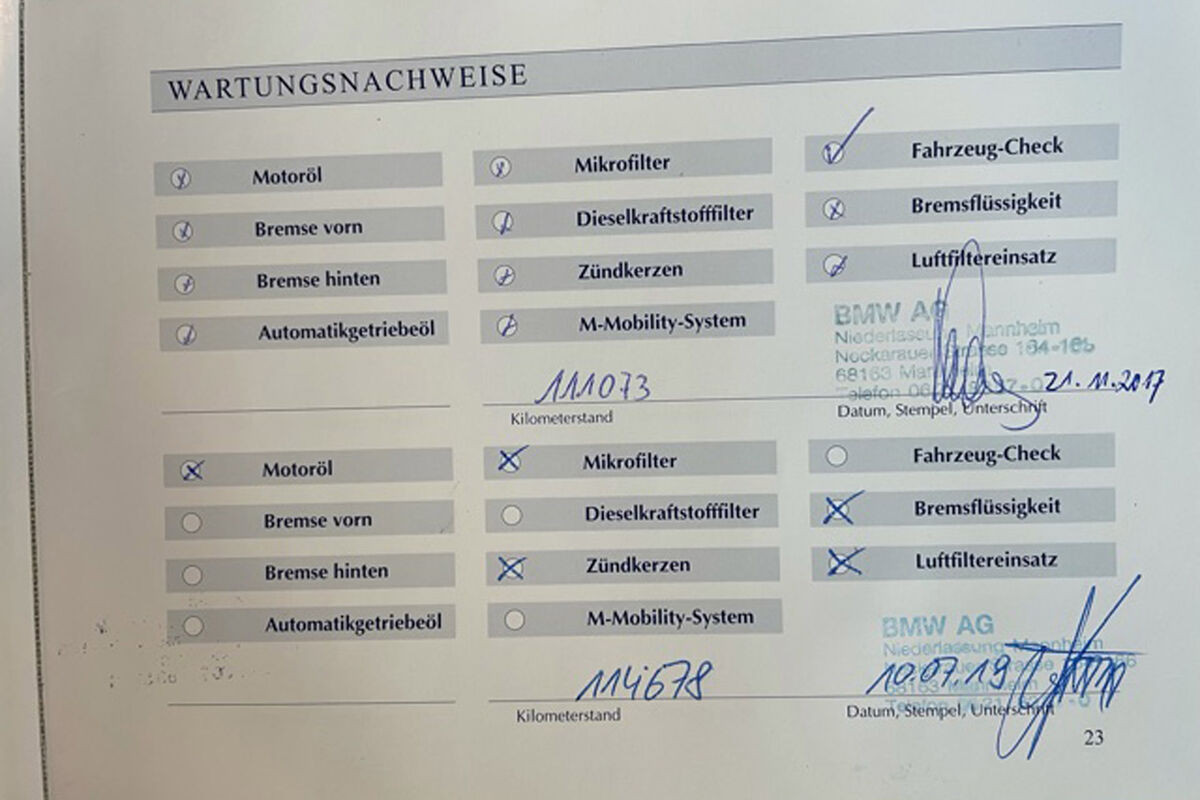 WARTUNGSNACHWEISE
Motoröl
Mikrofilter
Fahrzeug-Check
Bremse vorn
Dieselkraftstofffilter
Bremsflüssigkeit
Bremse hinten
Zündkerzen
Luftfiltereinsatz
Automatikgetriebeöl
M-Mobility-System
BMW AG
Niederlassung Mannheim
68163 Mannheim
Telefon
111073
21.11.2017
Kilometerstand
Datum, Stempel, Unterschrift
Motoröl
Mikrofilter
Fahrzeug-Check
Bremse vorn
Dieselkraftstofffilter
Bremsflüssigkeit
Bremse hinten
Zündkerzen
Luftfiltereinsatz
Automatikgetriebeöl
M-Mobility-System
BMW AG
Niederlassung Mannheim
68163 Mannheim
Telefon
114678
10.07.19
Kilometerstand
Datum, Stempel, Unterschrift
23